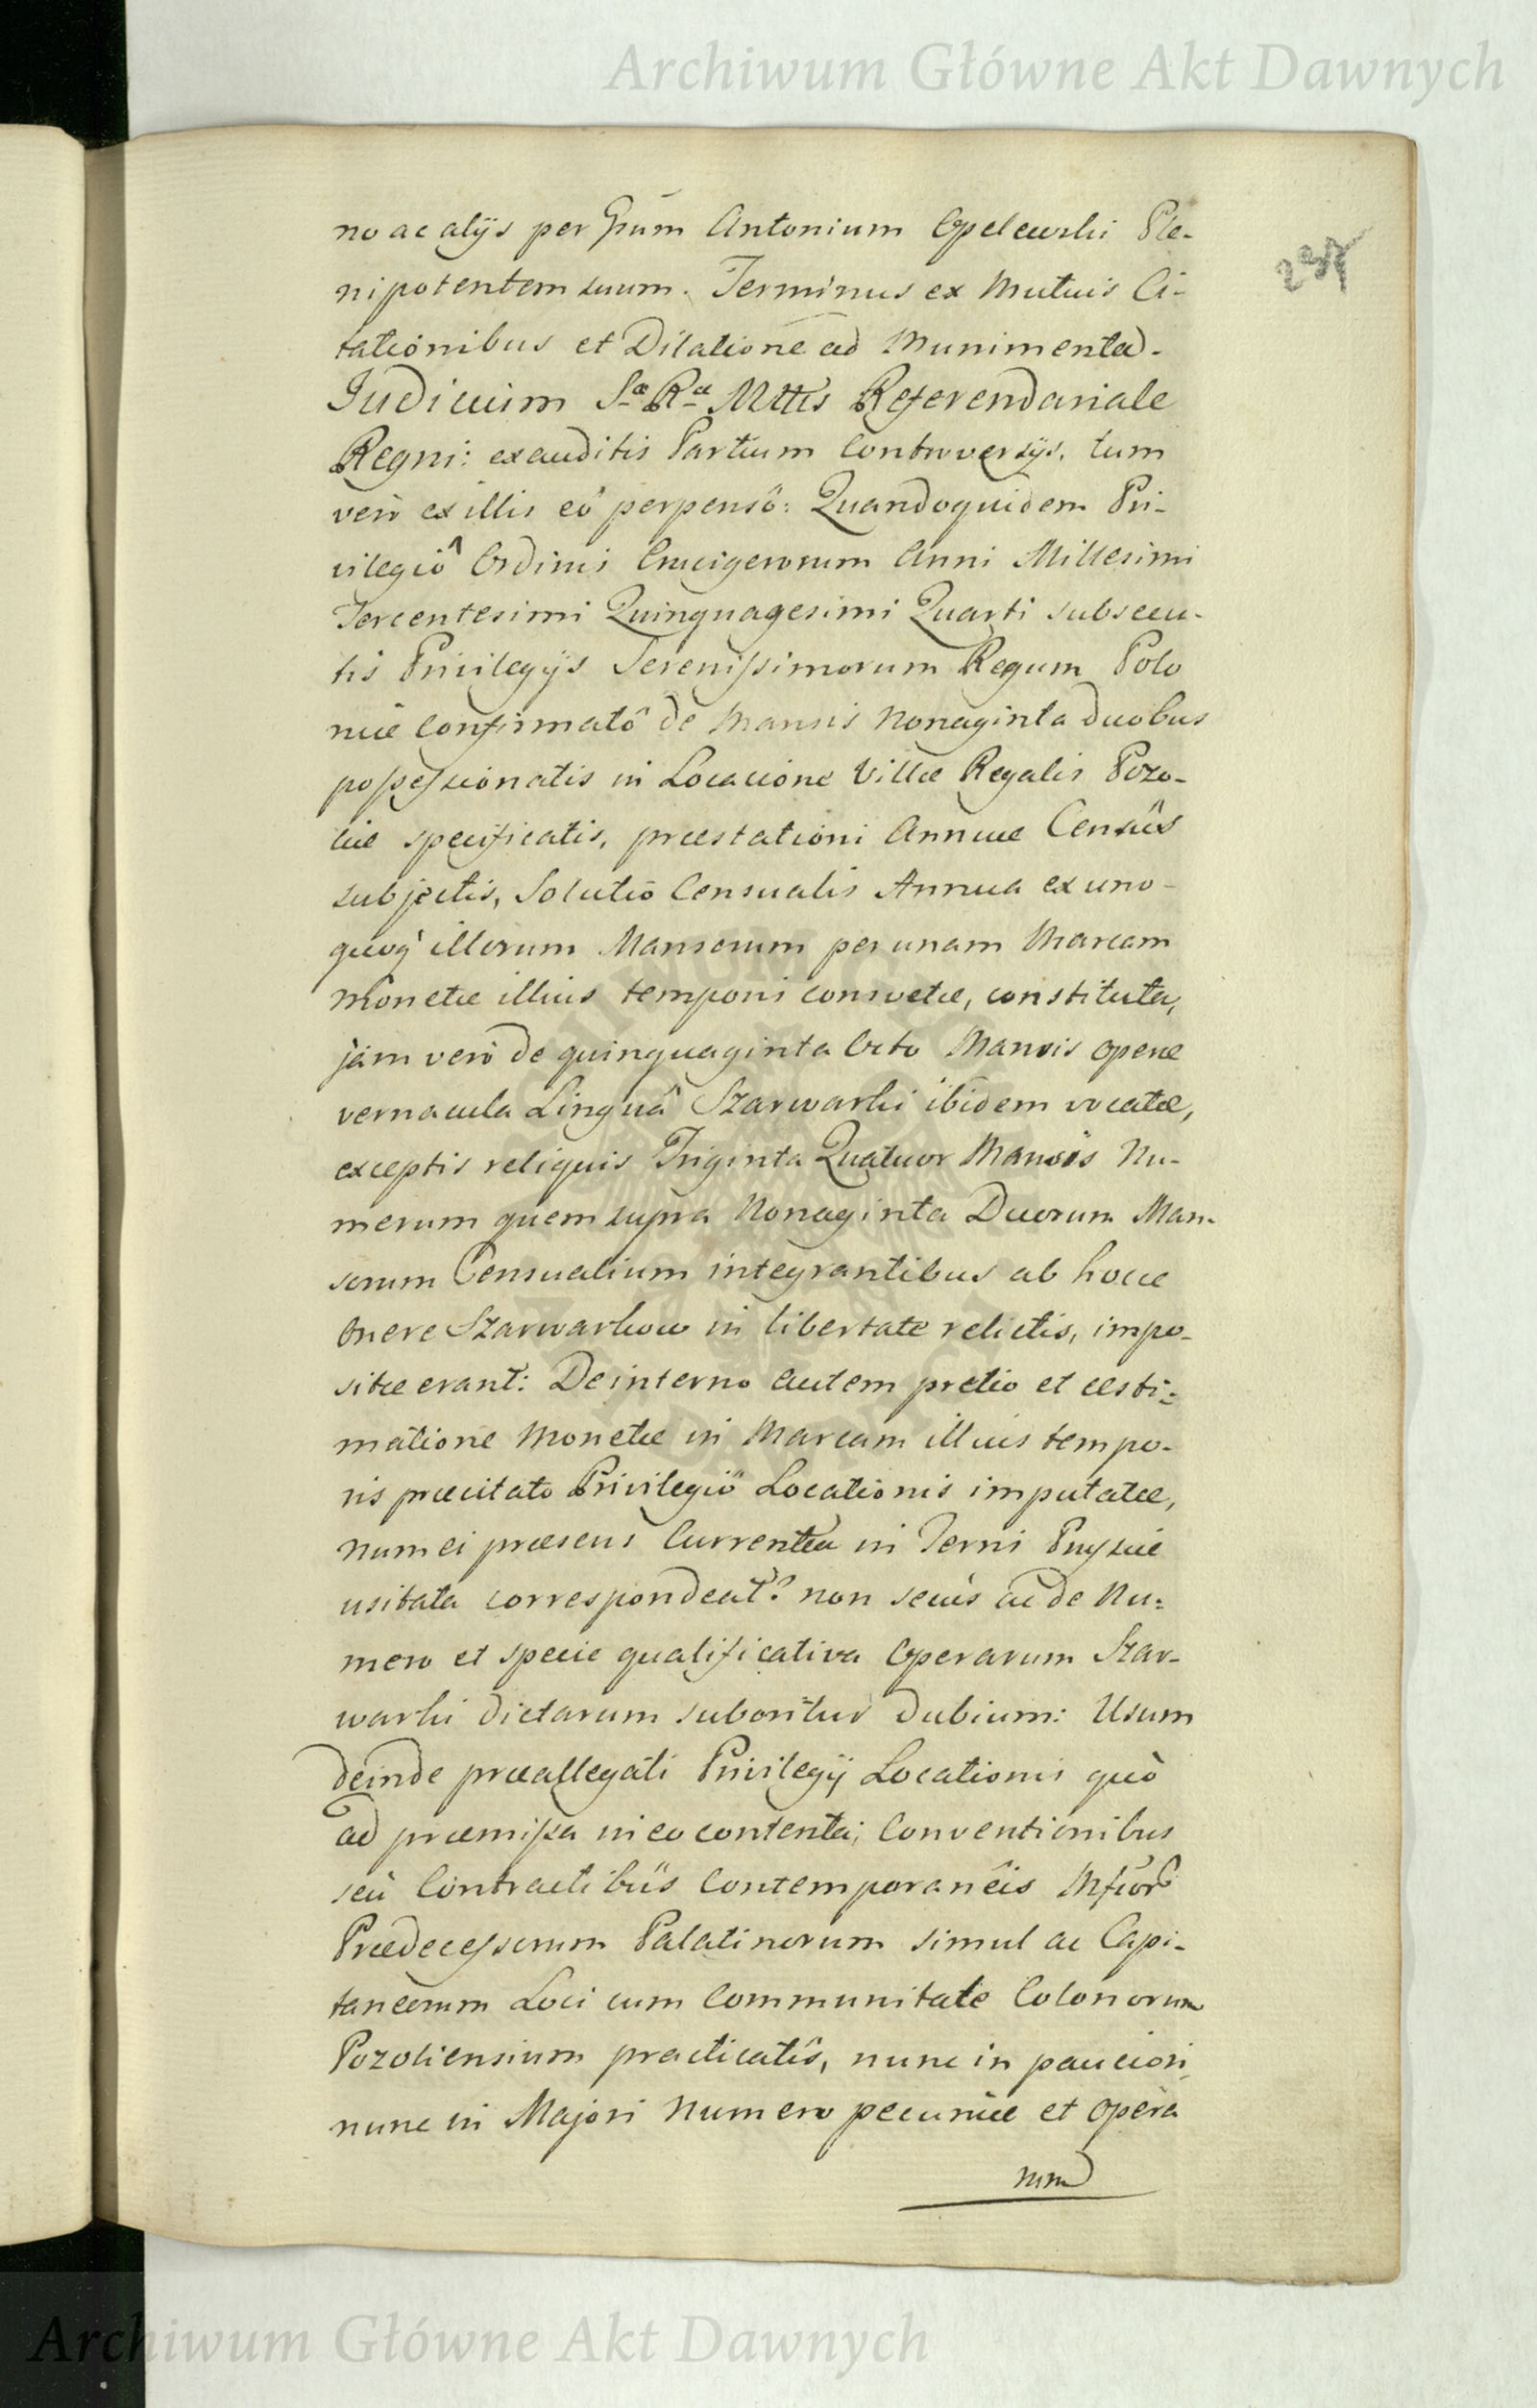 Archiwum Główne Akt Dawnych
no ac alijs per Gnum Antonium Opelewski Ple-
nipotentem suum. Terminus ex Mutuis Ci-
tationibus et Dilatione ad Munimenta.
Judicium Sæ Ræ Mttis Referendariale
Regni: exauditis Partium Controversijs, tum
verò ex illis eô perpensô: Quandoquidem Pri-
vilegiô Ordinis Crucigerorum Anni Millesimi
Tercentesimi Quinquagesimi Quarti subsecu-
tis Privilegijs Serenissimorum Regum Polo
niæ Confirmatô de Mansis Nonaginta duobus
possessionatis in Locacione Villæ Regalis Pozo-
liæ specificatis, præstationi Annuæ Censûs
subjectis, Solutio Censualis Annua ex uno-
quoq̀ illorum Mansorum per unam Marcam
Monetæ illius temporis consvetæ, constituta,
jàm verò de quinquaginta Octo Mansis operæ
vernacula Linguâ Szarwarki ibidem vocatæ,
exceptis reliquis Triginta Quatuor Mansis Nu-
merum quem supra Nonaginta Duorum Man-
sorum Censualium integrantibus ab hocce
Onere Szarwarkow in libertate relictis, impo-
sitæ erant: De interno autem pretio et æsti-
matione Monetæ in Marcam illius tempo-
ris præcitato Privilegiô Locationis imputatæ,
num ei præsens Currentia in Terris Prussiæ
usitata correspondeat? non secùs ac de Nu-
mero et specie qualificativa Operarum Szar-
warki dictarum suboritur dubium: Usum
deinde præallegati Privilegij Locationis quò
ad præmissa in eo contenta; Conventionibus
seù Contractibûs Contemporaneis Mfcor
Prædecessorum Palatinorum simul ac Capi-
taneorum Loci cum Communitate Colonorum
Pozoliensium practicatîs, nunc in pauciori,
nunc in Majori Numero pecuniæ et opera
rum
Archiwum Główne Akt Dawnych